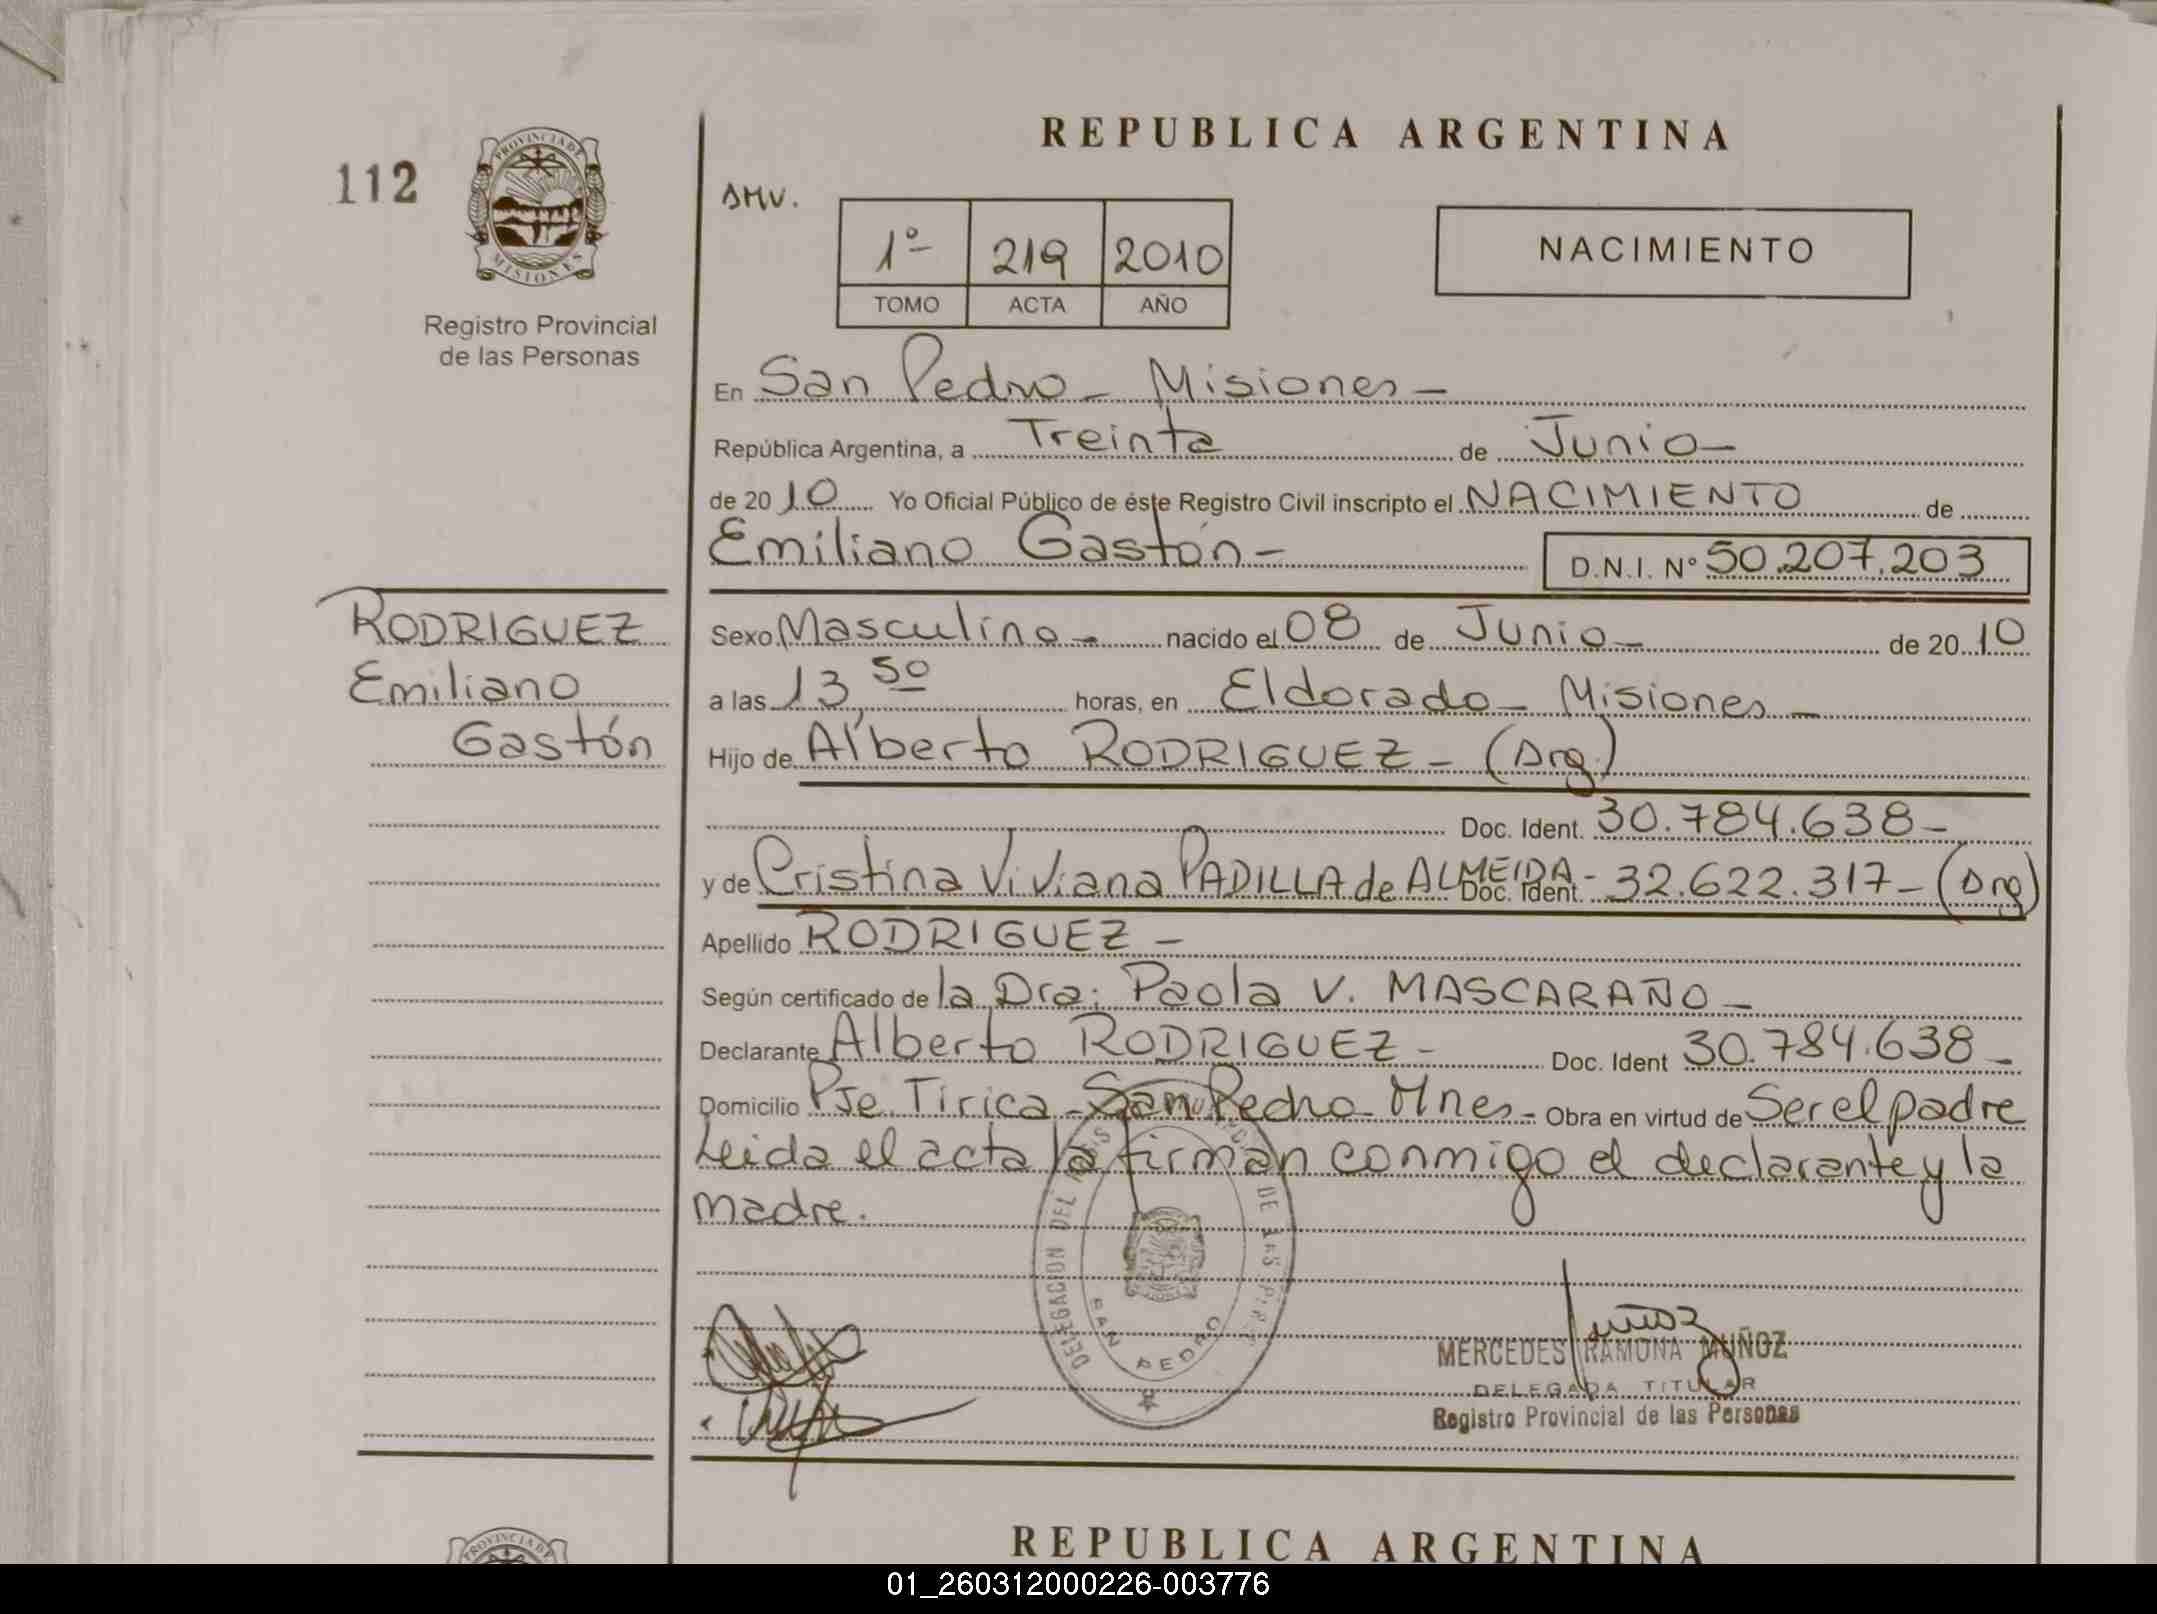 REPUBLICA ARGENTINA
112
PROVINCIA DE
MISIONES
Registro Provincial
de las Personas
SMV.
1º 219 2010
TOMO ACTA AÑO
NACIMIENTO
En San Pedro - Misiones -
República Argentina, a Treinta de Junio -
de 20 10 Yo Oficial Público de éste Registro Civil inscripto el NACIMIENTO de
Emiliano Gastón -
D.N.I. Nº 50.207.203
RODRIGUEZ
Emiliano
Gastón
Sexo Masculino - nacido el 08 de Junio - de 20 10
a las 13,50 horas, en Eldorado - Misiones -
Hijo de Alberto RODRIGUEZ - (Arg)
Doc. Ident. 30.784.638 -
y de Cristina Viviana PADILLA de ALMEIDA - Doc. Ident. 32.622.317 - (Arg)
Apellido RODRIGUEZ -
Según certificado de la Dra: Paola V. MASCARAÑO -
Declarante Alberto RODRIGUEZ - Doc. Ident 30.784.638 -
Domicilio Pje Tirica - San Pedro - Mnes - Obra en virtud de Ser el padre
Leida el acta la firman conmigo el declarante y la
madre.
DELEGACION DEL DE LAS
SAN PEDRO
Muñoz
MERCEDES RAMONA MUÑOZ
DELEGADA TITULAR
Registro Provincial de las Personas
PROVINCIA DE
REPUBLICA ARGENTINA
01_260312000226-003776